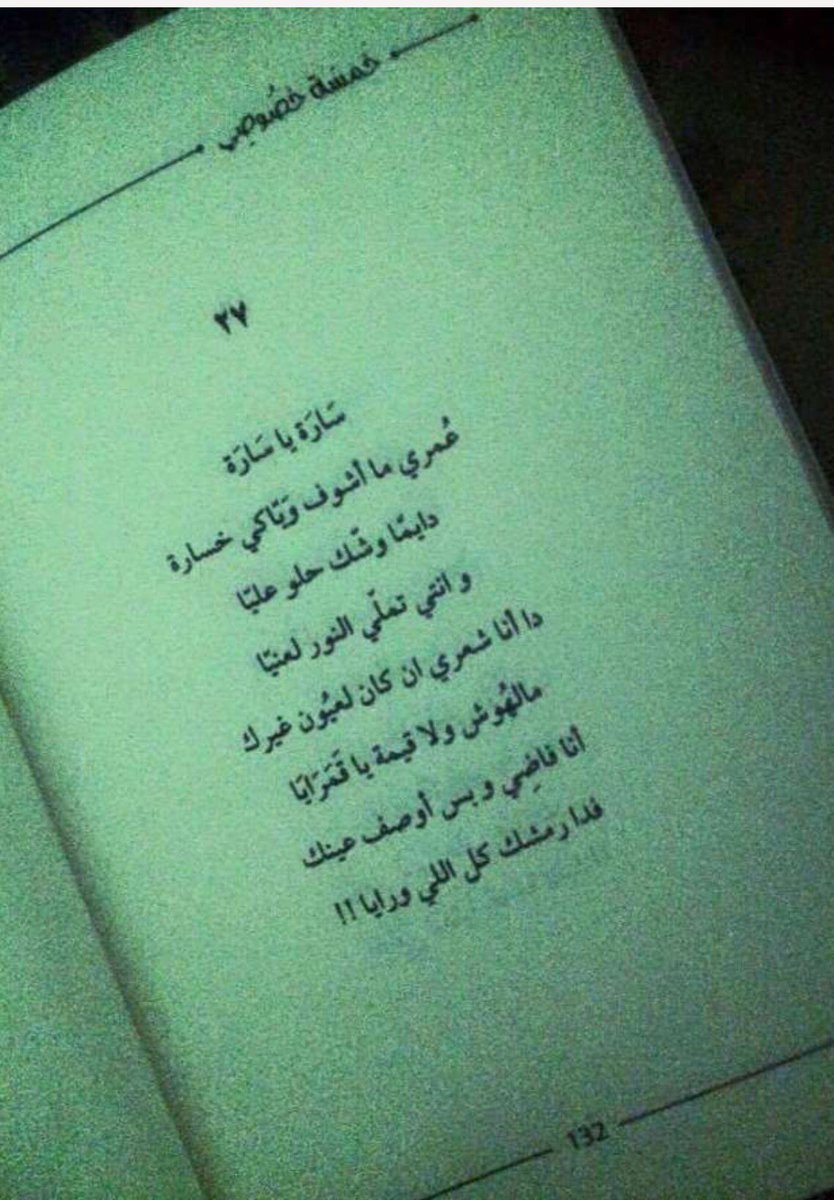 خمسَة خصُوصِي
٢٧
سَارَة يا سَارَة
عُمري ما أشوف وَيّاكي خسارة
دايمًا وشّك حلو عليّا
و انتي تملّي النور لعنيّا
دا أنا شعري ان كان لعيُون غيرك
مالهُوش ولا قيمة يا قَمَرَايَا
أنا فاضِي و بس أوصف عينك
فدا رمشك كل اللي ورايا !!
132